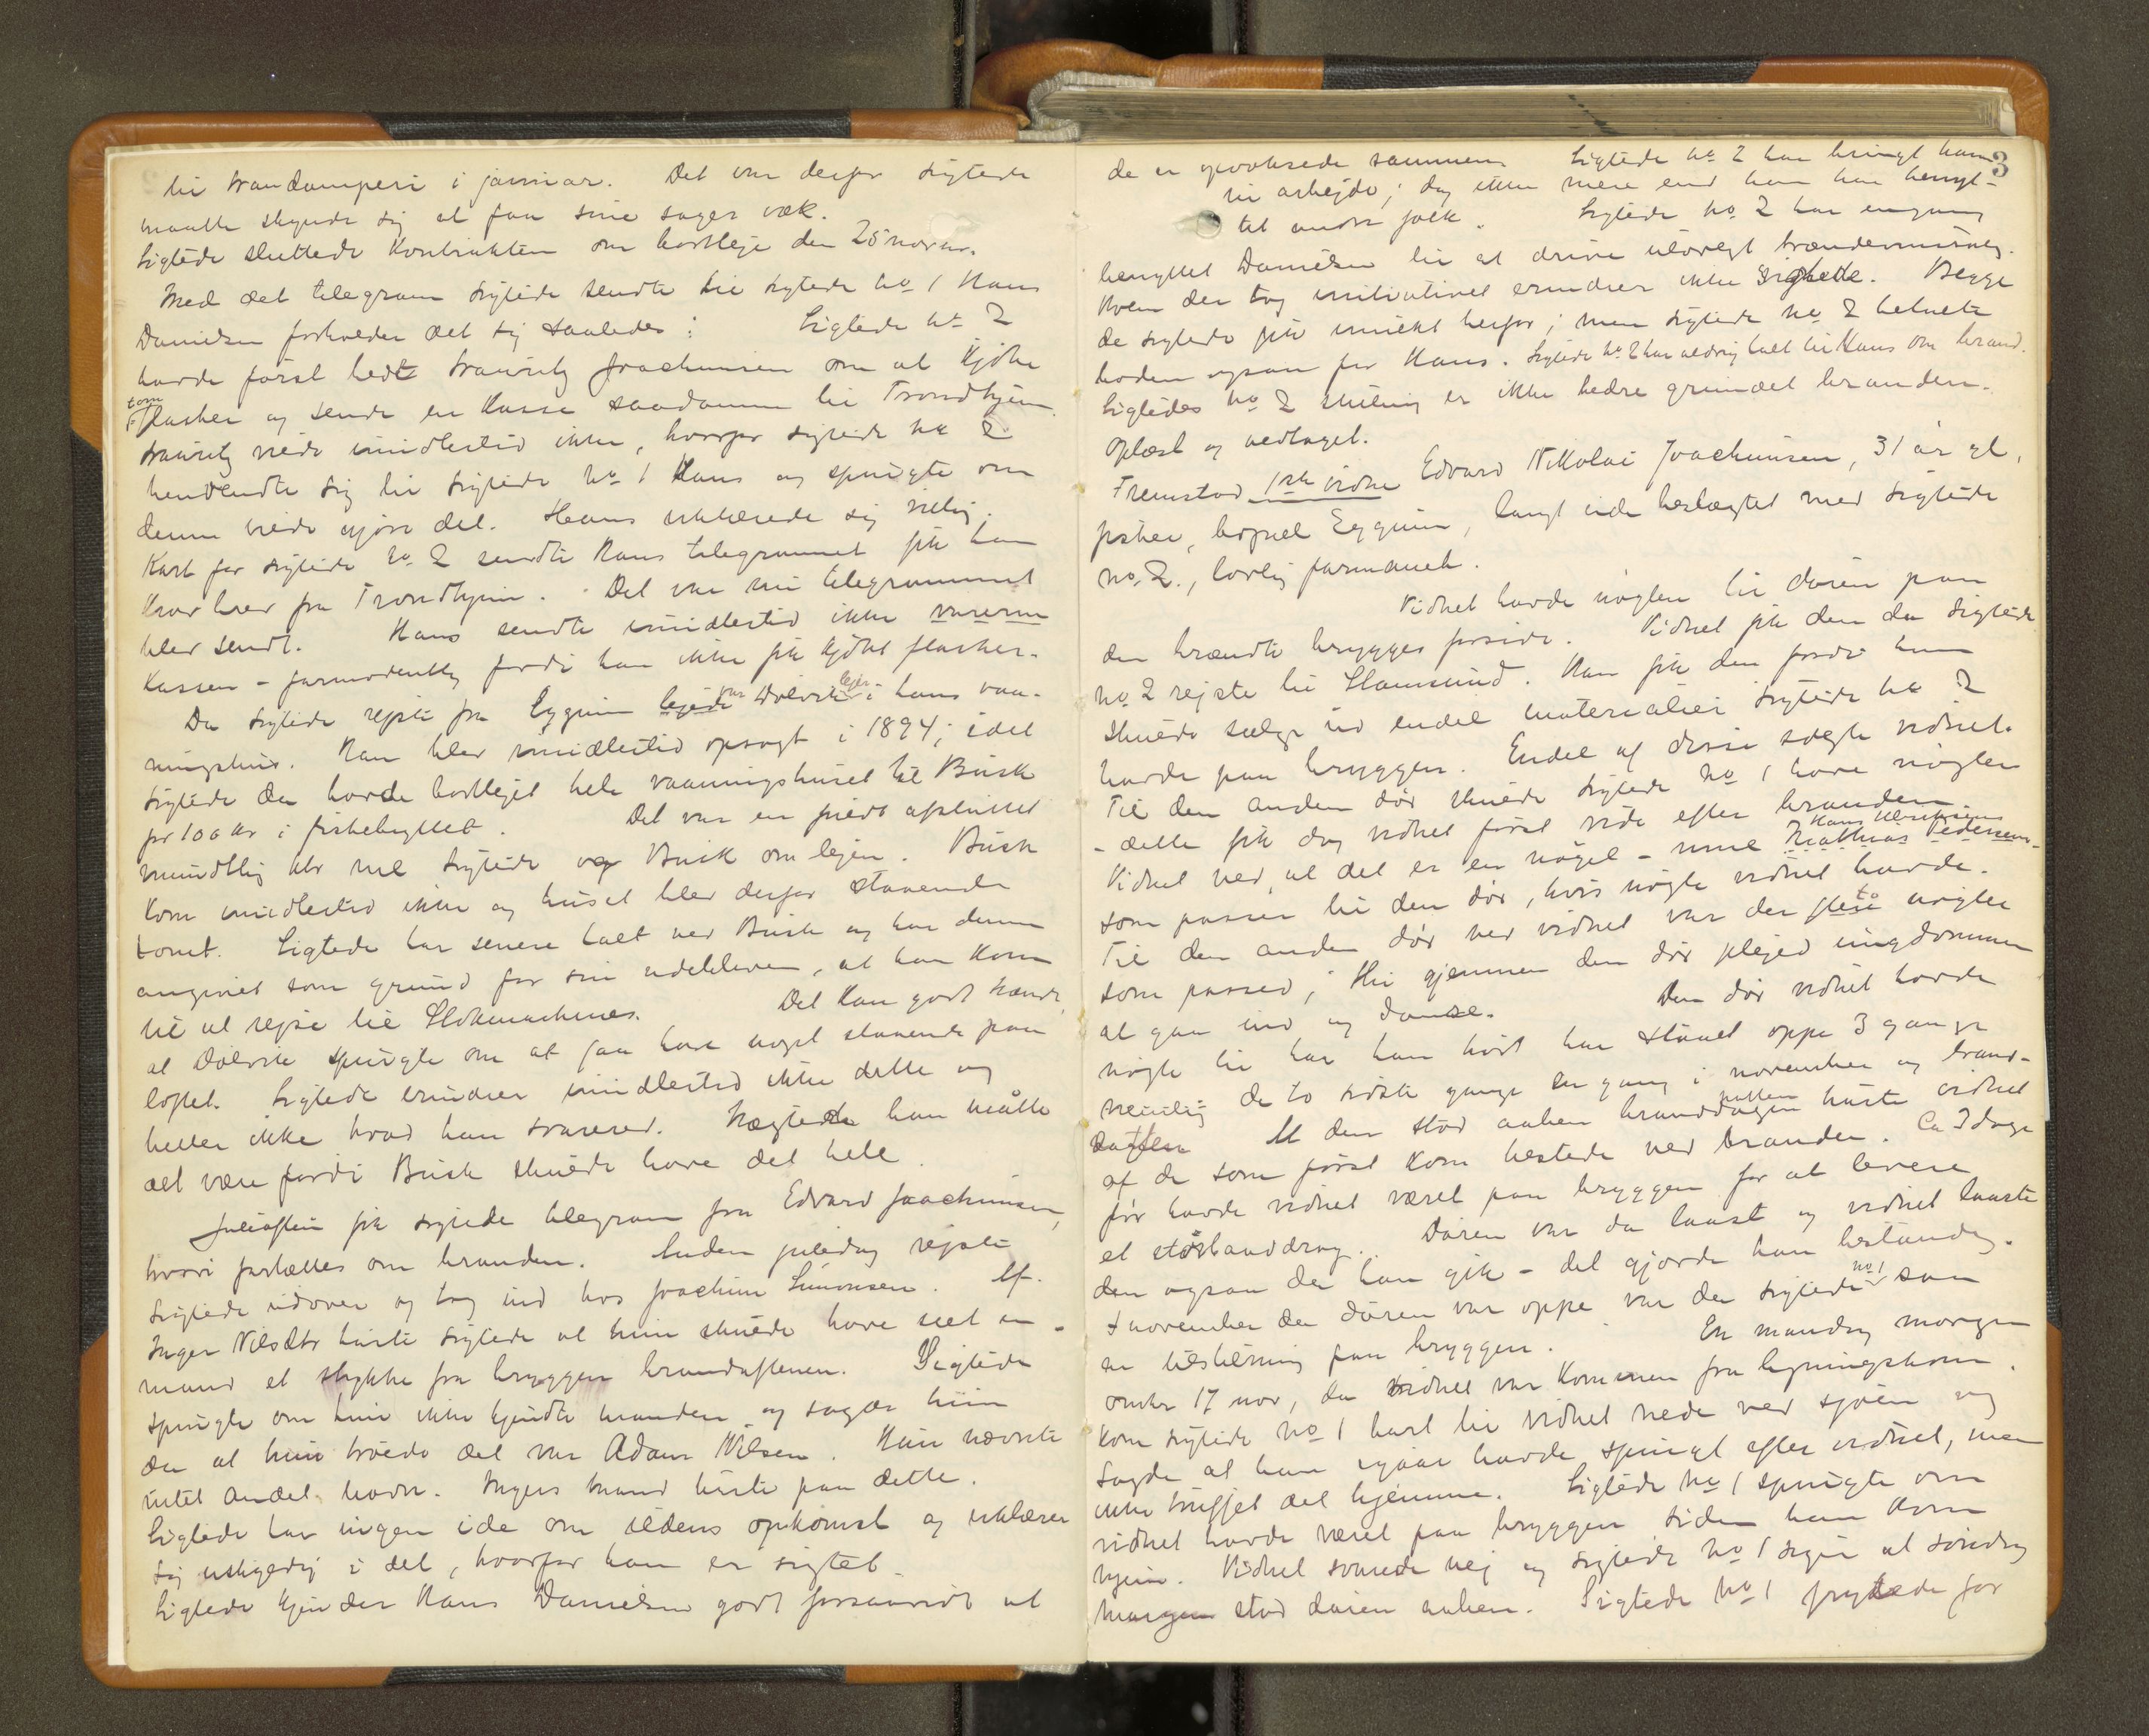 til trandamperi i januar. Det var derfor sigtede
maatte skynde sig at faa sine sager væk.
Sigtede sluttede Kontrakten om bortleje den 25 novbr.
Med det telegram sigtede sendte til sigtede No 1 Hans
Danielsen forholder det sig saaledes: Sigtede No 2
havde først bedt Joachimsen om at kjøbe
tom
Flasker og sende en Kasse saadanne til Trondhjem.
vilde imidlertid ikke, hvorfor sigtede No 2
henvendte sig til sigtede No 1 Hans og spurgte om
denne vilde gjøre det. Hans erklærede sig villig.
Kort før sigtede No 2 sendte Hans telegrammet fik han
Kravbrev fra Trondhjem. Det var nu telegrammet
blev sendt. Hans sendte imidlertid ikke varerne
Kassen - formodentlig fordi han ikke fik kjøbt flasker.
Da sigtede rejste fra Eggum var i hans vaa-
ningshus. Han blev imidlertid opsagt i 1894; idet
sigtede da havde bortlejet hele vaaningshuset til Busk
for 100 Kr i fiskebyttet. Det var en fuldt afsluttet
mundtlig mel sigtede og Busk om lejen. Busk
kom imidlertid ikke og huset blev derfor staaende
tomt. Sigtede har senere talt ved Busk og har denne
angivet som grund for sin udebliven, at han kom
til at rejse til Stokmarknes. Det kan godt hænde,
at spurgte om at faa have noget staaende paa
loftet. Sigtede erindrer imidlertid ikke dette og
heller ikke hvad han svarede. Nægtede han måtte
det være fordi Busk skulde have det hele.
Juleaften fik sigtede telegram fra Edvard Joachimsen,
hvori fortaltes om branden. Anden juledag rejste
sigtede udover og tog ind hos Joachim Simonsen. Af
Inger Nilsdtr hørte sigtede at hun skulde have seet en
mand et stykke fra bryggen brandaftenen. Sigtede
spurgte om hun ikke kjendte manden og sagde hun
da at hun troede det var Adam Nilsen. Hun nævnte
intet andet navn. Ingers mand hørte paa dette.
Sigtede har ingen ide om ildens opkomst og erklærer
sig uskyldig i det, hvorfor han er sigtet.
Sigtede kjender Hans Danielsen godt forsaavidt at
3
de er opvoksede sammen. Sigtede No 2 har bragt ham
til arbejde; dog ikke mere end han har benyt-
tet andre folk. Sigtede No 2 har engang
benyttet Danielsen til at drive ulovlig brændevinssalg.
Hvem der tog initiativet erindrer ikke sigtede. Begge
de sigtede fik mulkt herfor; men sigtede No 2 betalte
boden ogsaa for Hans. Sigtede No 2 har aldrig talt til Hans om brand.
Sigtedes No 2 stilling er ikke bedre grundet branden.
Oplæst og vedtaget.
Fremstod 1ste vidne Edvard Nikolai Joachimsen, 31 år gl,
fisker, bopæl Eggum, langt ude beslægtet med sigtede
no. 2., lovlig formanet.
Vidnet havde nøglen til døren paa
den brændte brygges forside. Vidnet fik den da sigtede
No 2 rejste til Hamsund. Han fik den fordi han
skulde sælge ud endel materialier sigtede No 2
havde paa bryggen. Endel af disse solgte vidnet.
Til den anden dør skulde sigtede No 1 have nøglen
- dette fik dog vidnet først vide efter branden.
Vidnet ved, at det er en nøgel - Mathias Pedersens -
som passer til den dør, hvis nøgle vidnet havde.
Til den anden dør ved vidnet var der flere nøgler
som passed; thi gjennem den dør plejed ungdommen
at gaa ind og danse. Den dør vidnet havde
nøgle til har han hørt har stået oppe 3 gange
nemlig de to sidste gange en gang i november og brand-
daften. At den stod aaben brandnatten hørte vidnet
af de som først kom tilstede ved branden. Ca 3 dage
før havde vidnet været paa bryggen for at levere
et Døren var da laast og vidnet laaste
den ogsaa da han gik - det gjorde han bestandig.
I november da døren var oppe var der sigtede No 1 som
en paa bryggen. En mandag morgen
omkr 17 nov, da vidnet var kommen fra
kom sigtede No 1 bort til vidnet nede ved sjøen og
sagde at han igaar havde spurgt efter vidnet, men
ikke truffet det hjemme. Sigtede No 1 spurgte om
vidnet havde været paa bryggen siden han kom
hjem. Vidnet svarede nej og sigtede No 1 siger at søndag
morgen stod døren aaben. Sigtede No 1 for